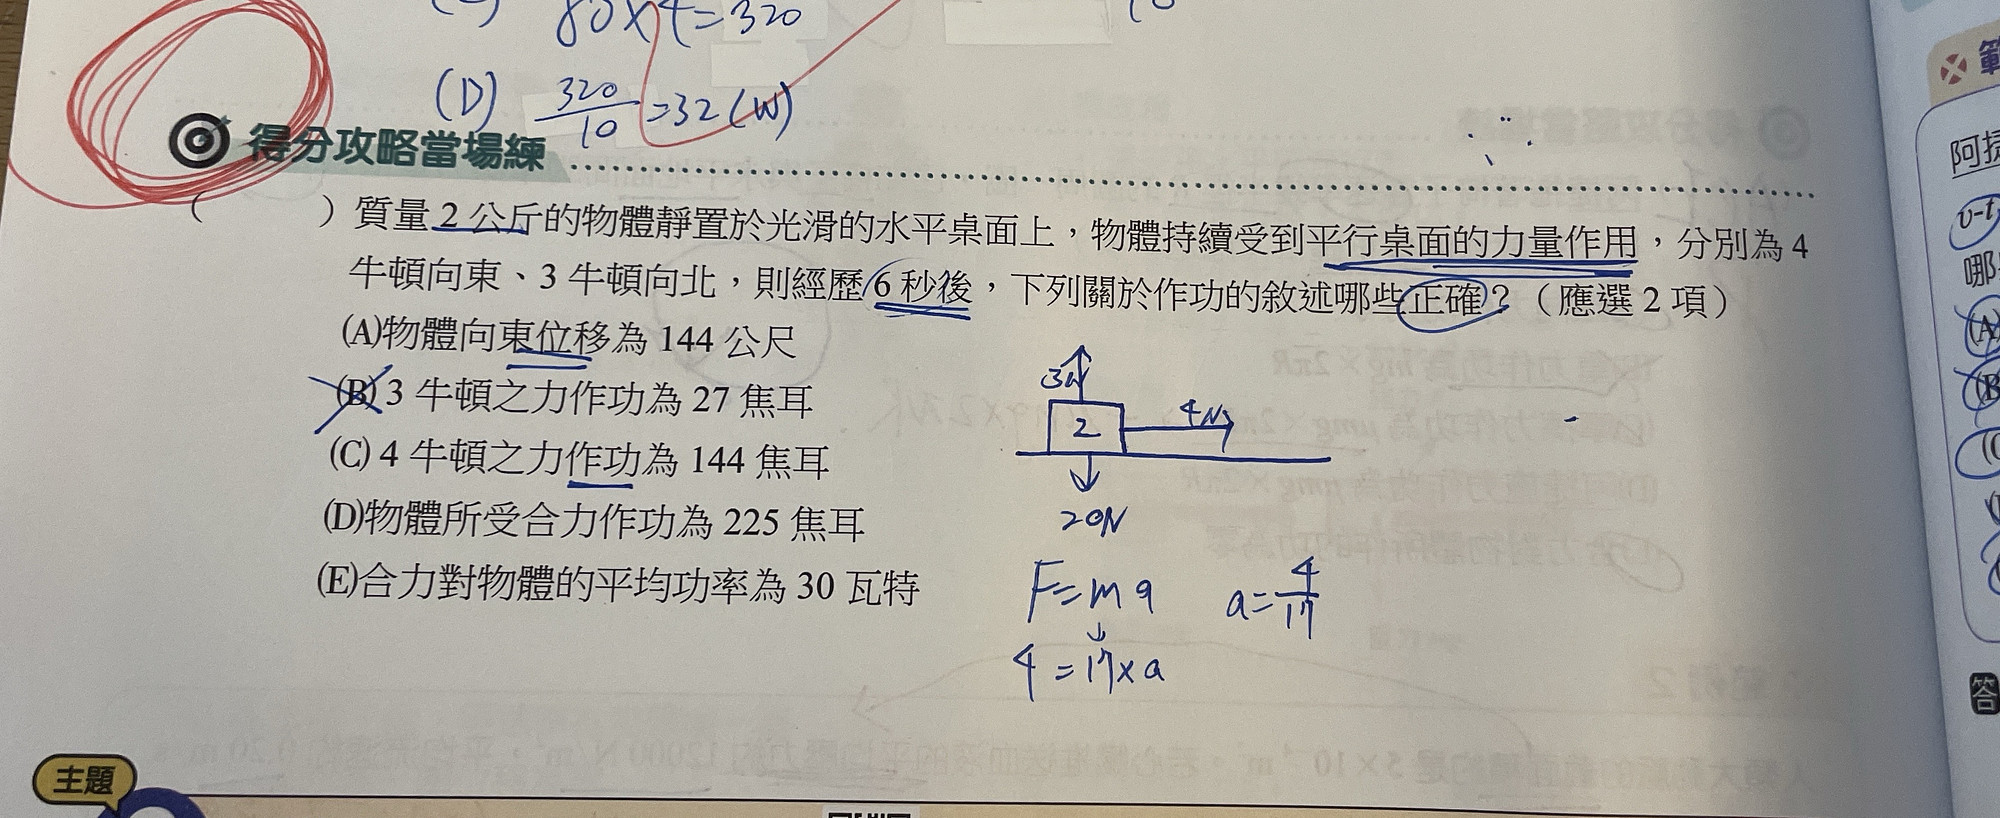 80×4=320
(D) 320/10 =32(W)
得分攻略當場練
( )質量 2 公斤的物體靜置於光滑的水平桌面上，物體持續受到平行桌面的力量作用，分別為 4
牛頓向東、3 牛頓向北，則經歷 6 秒後，下列關於作功的敘述哪些正確？（應選 2 項）
(A)物體向東位移為 144 公尺
(B) 3 牛頓之力作功為 27 焦耳
(C) 4 牛頓之力作功為 144 焦耳
(D)物體所受合力作功為 225 焦耳
(E)合力對物體的平均功率為 30 瓦特
3N
4N
2
20N
F=ma
a=4/17
4=17×a
主題
範
阿捷
v-t
哪
(A)
(B)
答